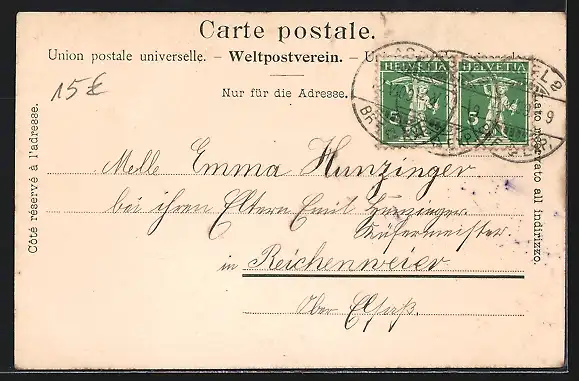 Carte postale.
Union postale universelle. – Weltpostverein. –
Nur für die Adresse.
HELVETIA HELVETIA
5 5
15€
Côté réservé à l'adresse.
Lato riservato all'indirizzo.
Melle Emma Hunzinger
bei ihren Eltern Emil Hunzinger
Küfermeister
in Reichenweier
Ober Elsaß.